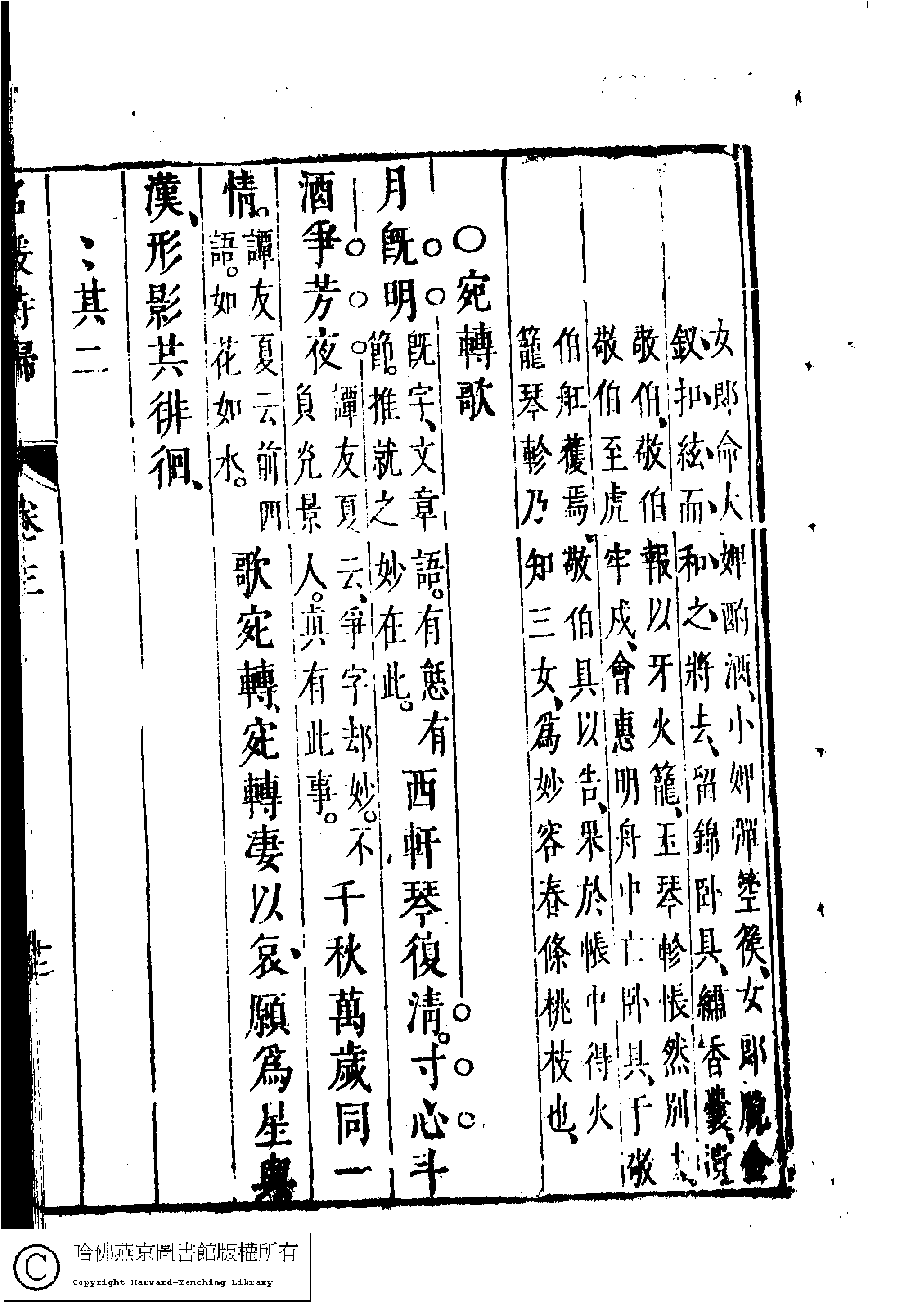 女郎命大婢酌酒、小婢彈箜篌、女郎脫金
釵、扣絃而和之、將去、留錦卧具、繡香囊、遺
敬伯、敬伯報以牙火籠、玉琴軫、悵然別去、
敬伯至虎牢戍、會惠明舟中亡卧具、于敬
伯舡獲焉、敬伯具以告、果於帳中得火
籠琴軫、乃知三女、爲妙容春條桃枝也、
〇宛轉歌
月既明既字、文章語。有慙有
節。推就之妙在此。西軒琴復清。寸心斗
酒爭芳夜譚友夏云、爭字却妙。不
負光景人。真有此事。千秋萬歲同一
情。譚友夏云前四
語。如花如水。歌宛轉、宛轉凄以哀、願爲星與
漢、形影共徘徊、
其二
名媛詩歸
卷三